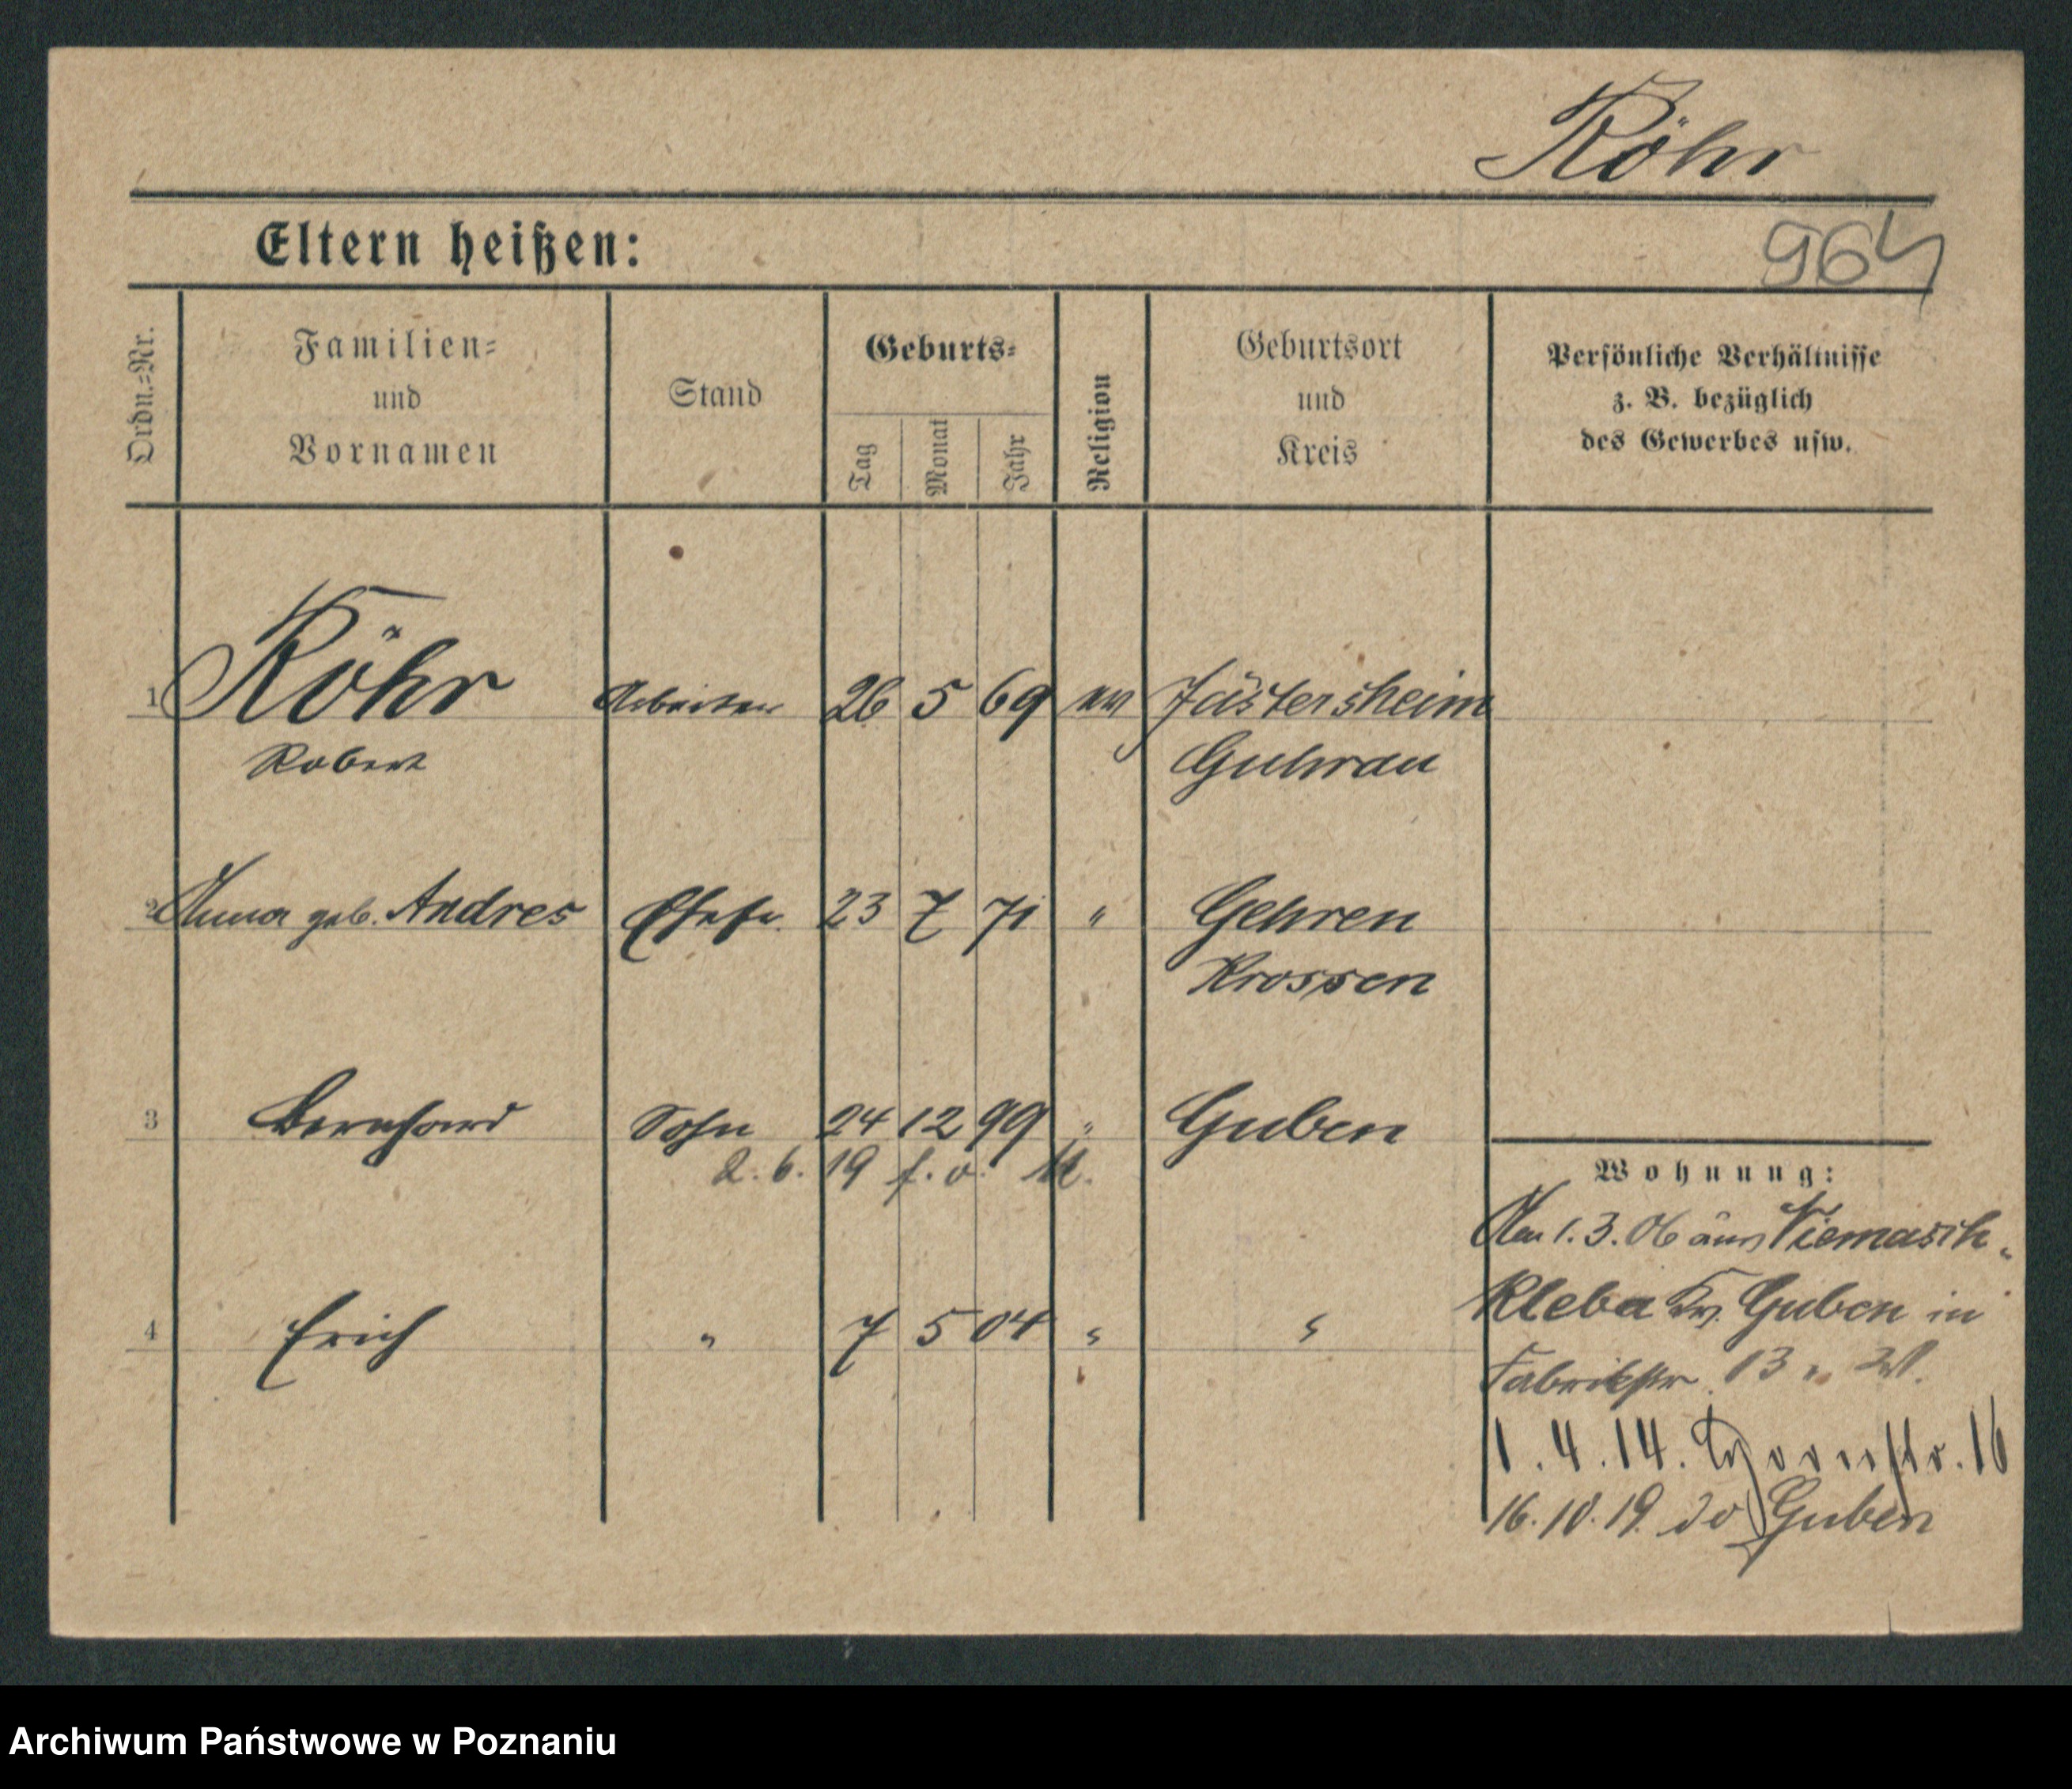 Röhr
964
Eltern heißen:
Ordn.=Nr.
Familien=
und
Vornamen
Stand
Geburts=
Tag
Monat
Jahr
Religion
Geburtsort
und
Kreis
Persönliche Verhältnisse
z. B. bezüglich
des Gewerbes usw.
1 Röhr Arbeiter 26 5 69 ev Jästersheim
Robert Guhrau
2 Anna geb. Andres Ehefr. 23 7 71 " Gehren
Krossen
3 Bernhard Sohn 24 12 99 " Guben
2. 6. 19 f. o.
Wohnung:
Am 1. 3. 06 aus Niemasch-
Kleba Kr. Guben in
4 Erich " 7 5 04 " "
Fabrikstr. 13
1. 4. 14. 16
16. 10. 19. Guben
Archiwum Państwowe w Poznaniu